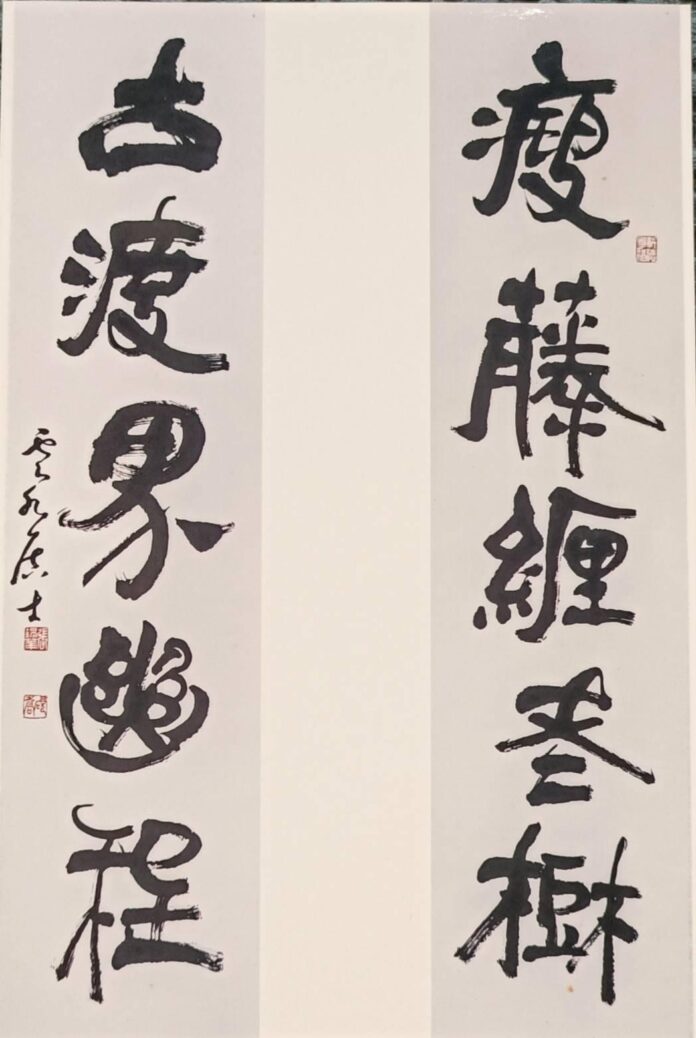 瘦藤纏老樹
古渡界幽程